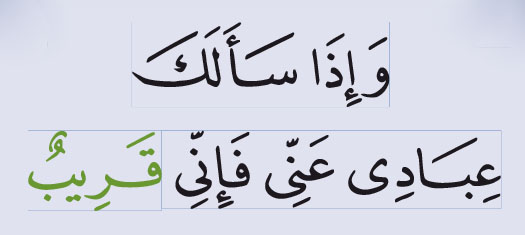 وَإِذَا سَأَلَكَ
عِبَادِى عَنِّى فَإِنِّى قَرِيبٌ